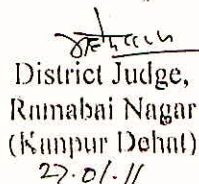 District Judge,
Ramabai Nagar
(Kanpur Dehat)
27.01.11